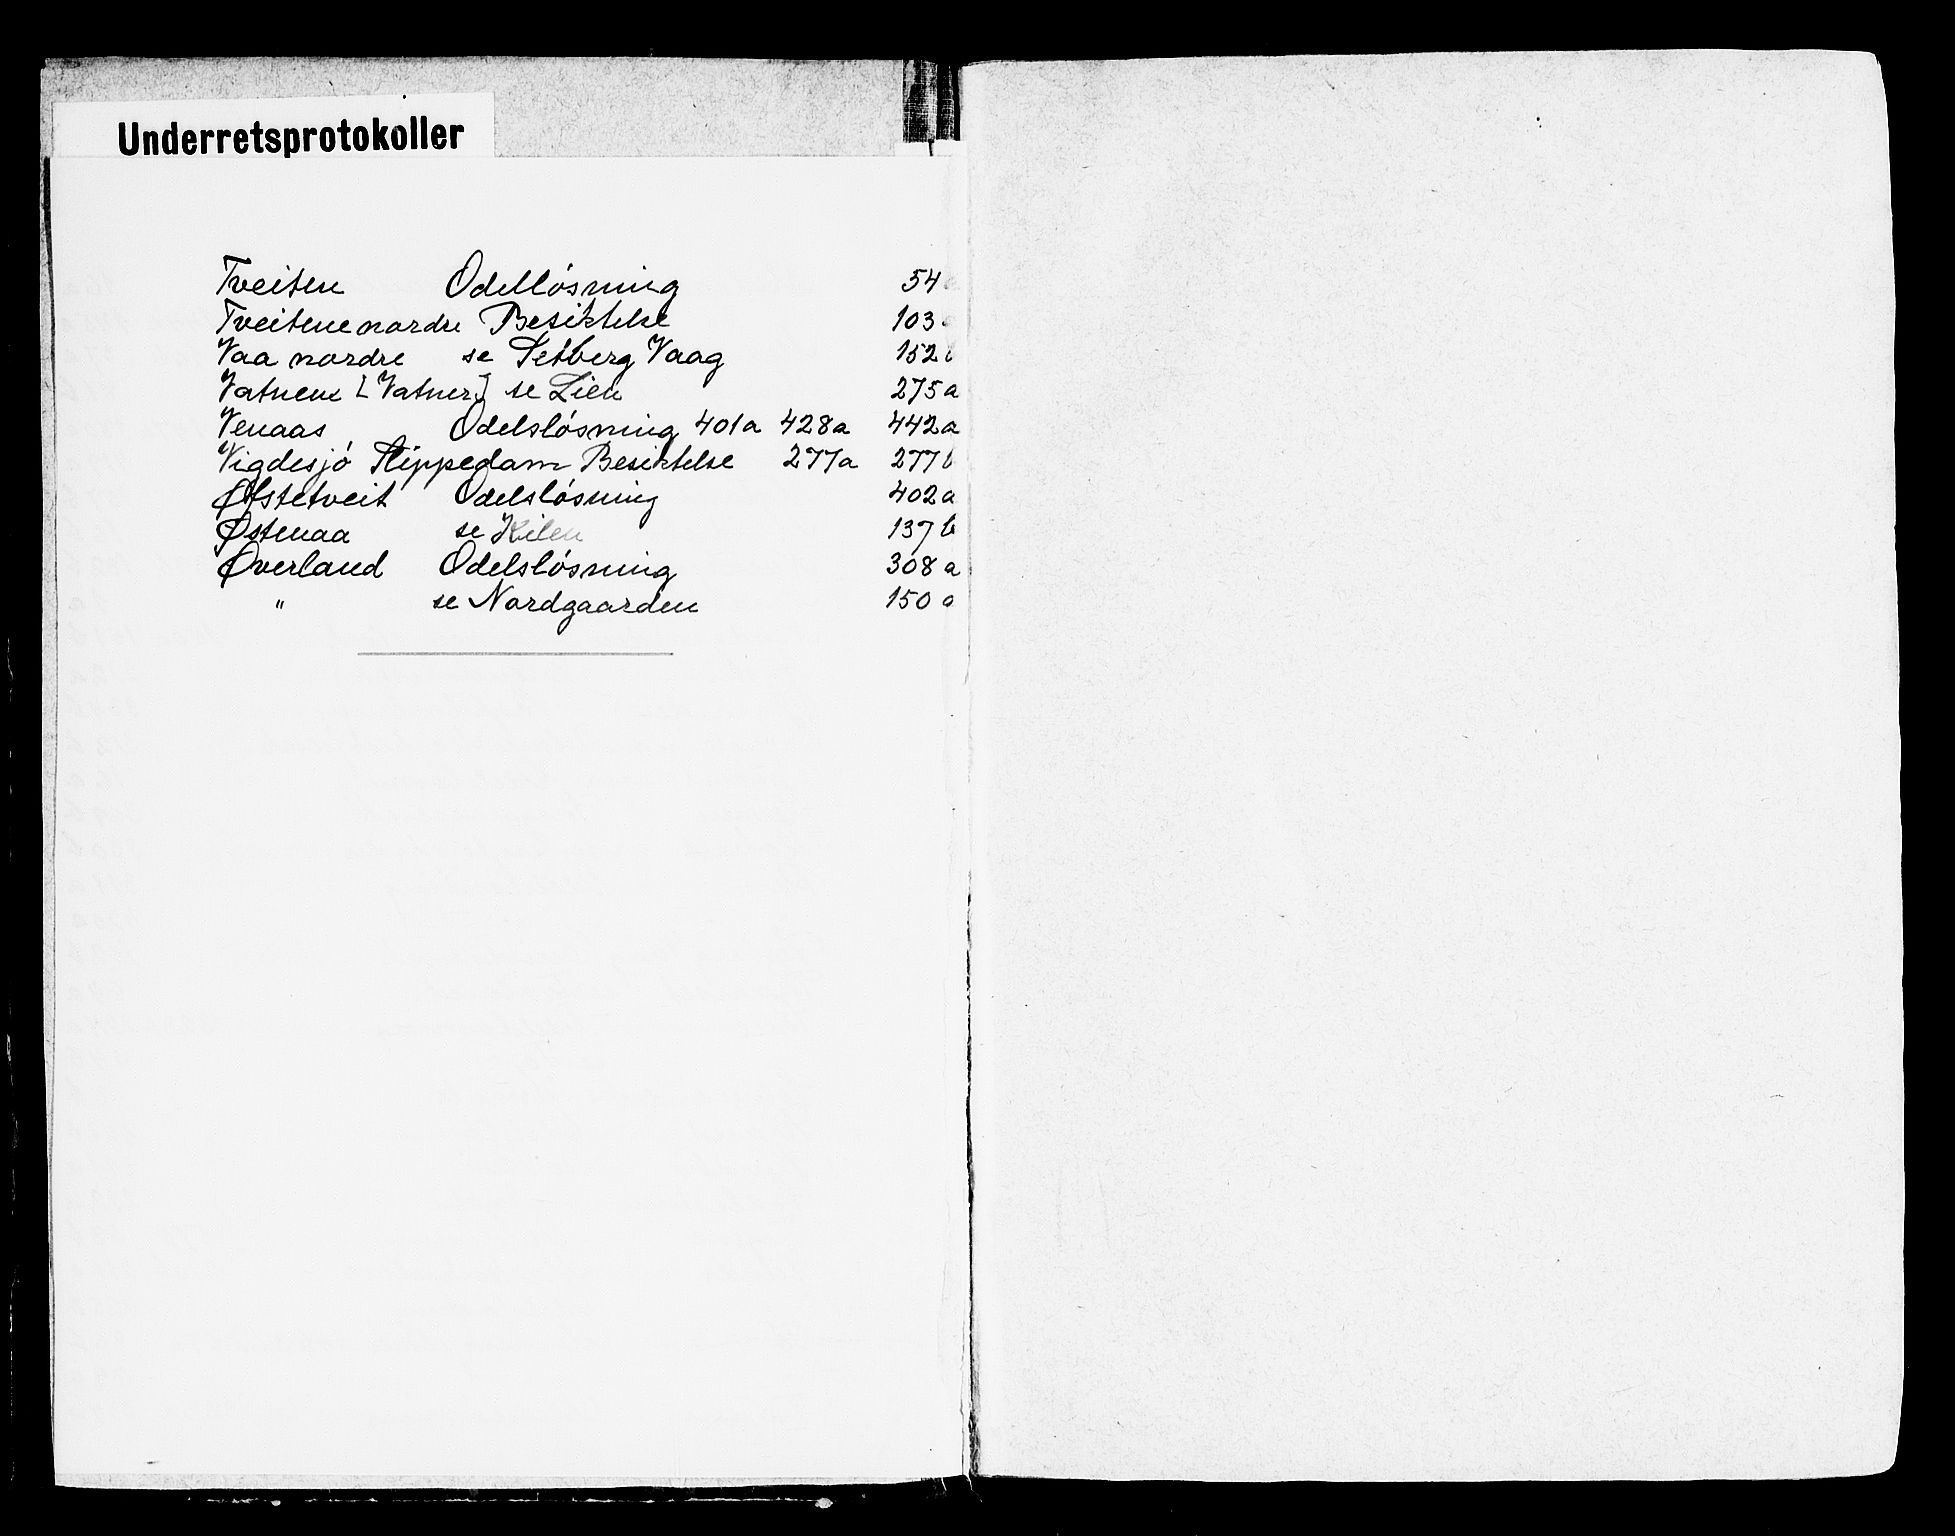 Underretsprotokoller
Tveiten Odelløsning 54a
Tveitene nordre Besiktelse 103a
Vaa nordre se Setberg Vaag 152b
Vatnene [Vatner] se Lien 275a
Venaas Odelsløsning 401a 428a 442a
Vigdesjó Slippedam Besiktelse 277a 277b
Ølstetveit Odelsløsning 402a
Østenaa se Kilen 137b
Øverland Odelsløsning 308a
" se Nordgaarden 150a